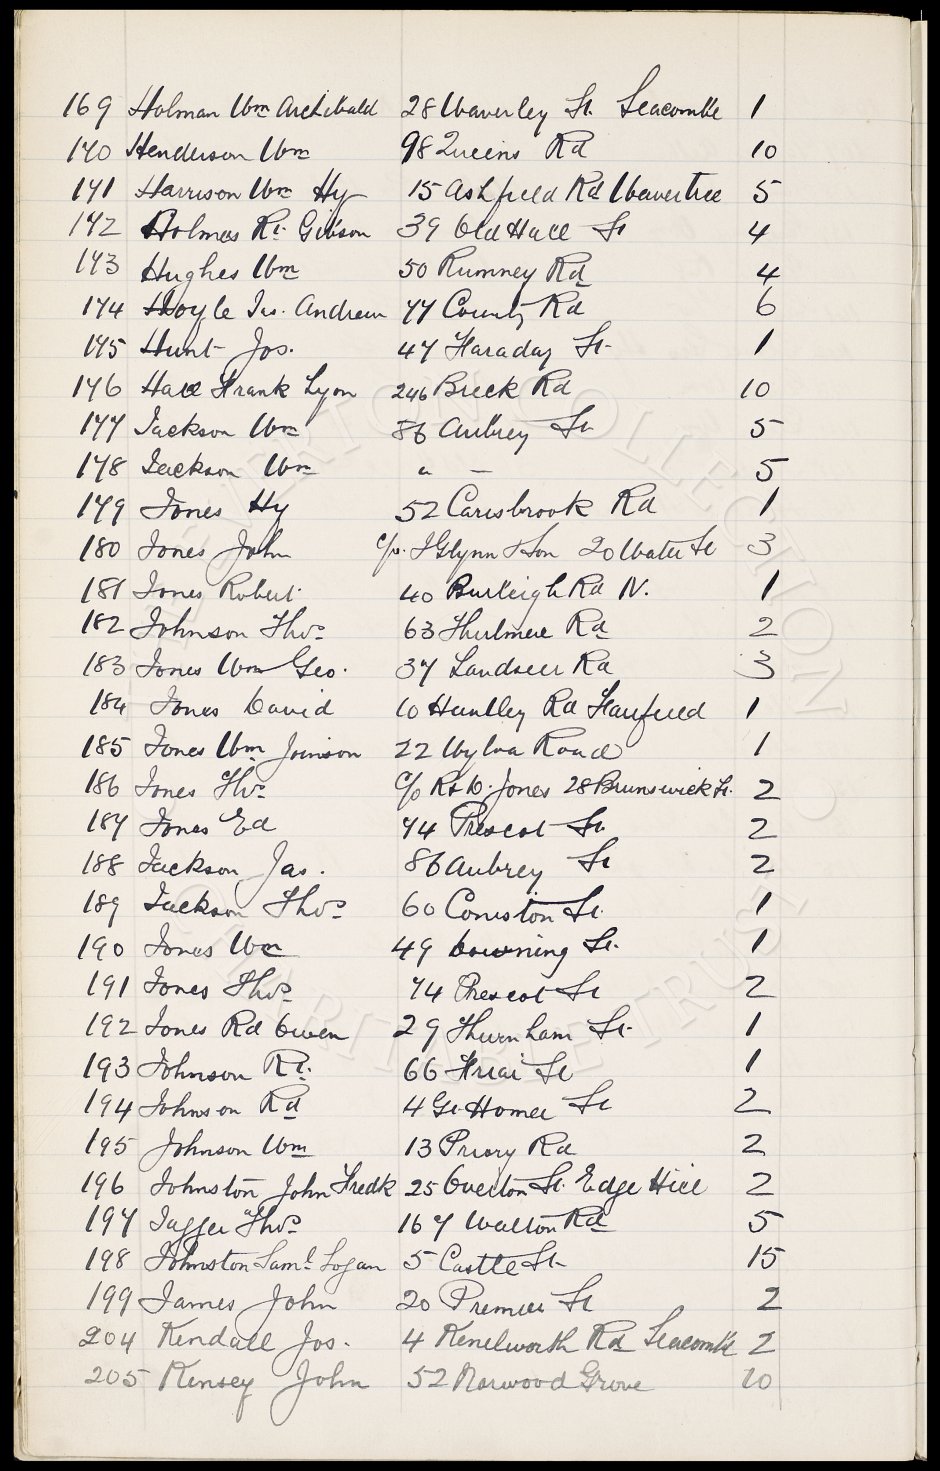 169 Holman Wm Archibald 28 Waverley St. Seacombe 1
170 Henderson Wm 98 Queens Rd 10
171 Harrison Wm Hy 15 Ashfield Rd Wavertree 5
172 Holmes Rt. Gibson 39 Old Hall St 4
173 Hughes Wm 50 Rumney Rd 4
174 Hoyle Jas. Andrew 77 County Rd 6
175 Hunt Jos. 47 Faraday St 1
176 Hall Frank Lyon 246 Breck Rd 10
177 Jackson Wm 86 Aubrey St 5
178 Jackson Wm " – 5
179 Jones Hy 52 Carisbrook Rd 1
180 Jones John c/o. J Glynn & Son 20 Water St 3
181 Jones Robert. 40 Burleigh Rd N. 1
182 Johnson Thos 63 Thirlmere Rd 2
183 Jones Wm Geo. 37 Landseer Rd 3
184 Jones David 10 Huntley Rd Fairfield 1
185 Jones Wm Joinson 22 Wylva Road 1
186 Jones Thos C/o Rt D. Jones 28 Brunswick St. 2
187 Jones Ed 74 Prescot St. 2
188 Jackson Jas. 86 Aubrey St 2
189 Jackson Thos 60 Coniston St. 1
190 Jones Wm 49 Downing St. 1
191 Jones Thos 74 Prescot St 2
192 Jones Rd Owen 29 Thurnham St 1
193 Johnson Rt. 66 Friar St 1
194 Johnson Rd 4 Gt. Homer St 2
195 Johnson Wm 13 Priory Rd 2
196 Johnston John Fredk 25 Overton St. Edge Hill 2
197 Jagger Thos 167 Walton Rd 5
198 Johnston Saml Logan 5 Castle St 15
199 James John 20 Premier St 2
204 Kendall Jos. 4 Kenelworth Rd Seacombe 2
205 Kensey John 52 Norwood Grove 10
THE EVERTON COLLECTION
CHARITABLE TRUST